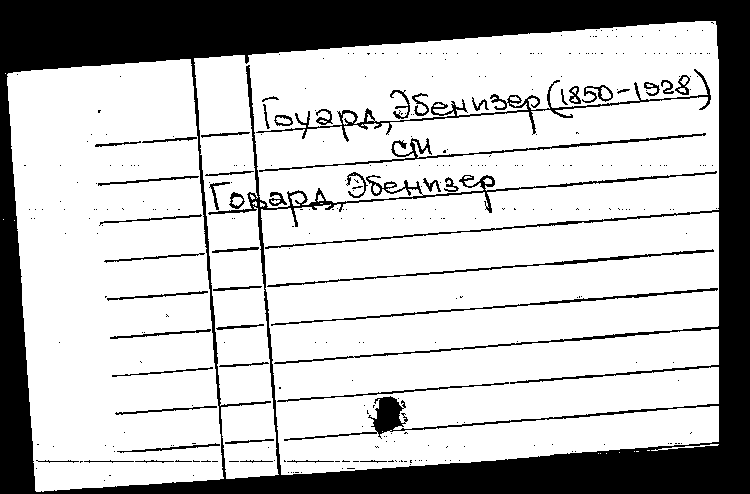 Гоуард, Эбенизер (1850-1928)
см.
Говард, Эбенизер